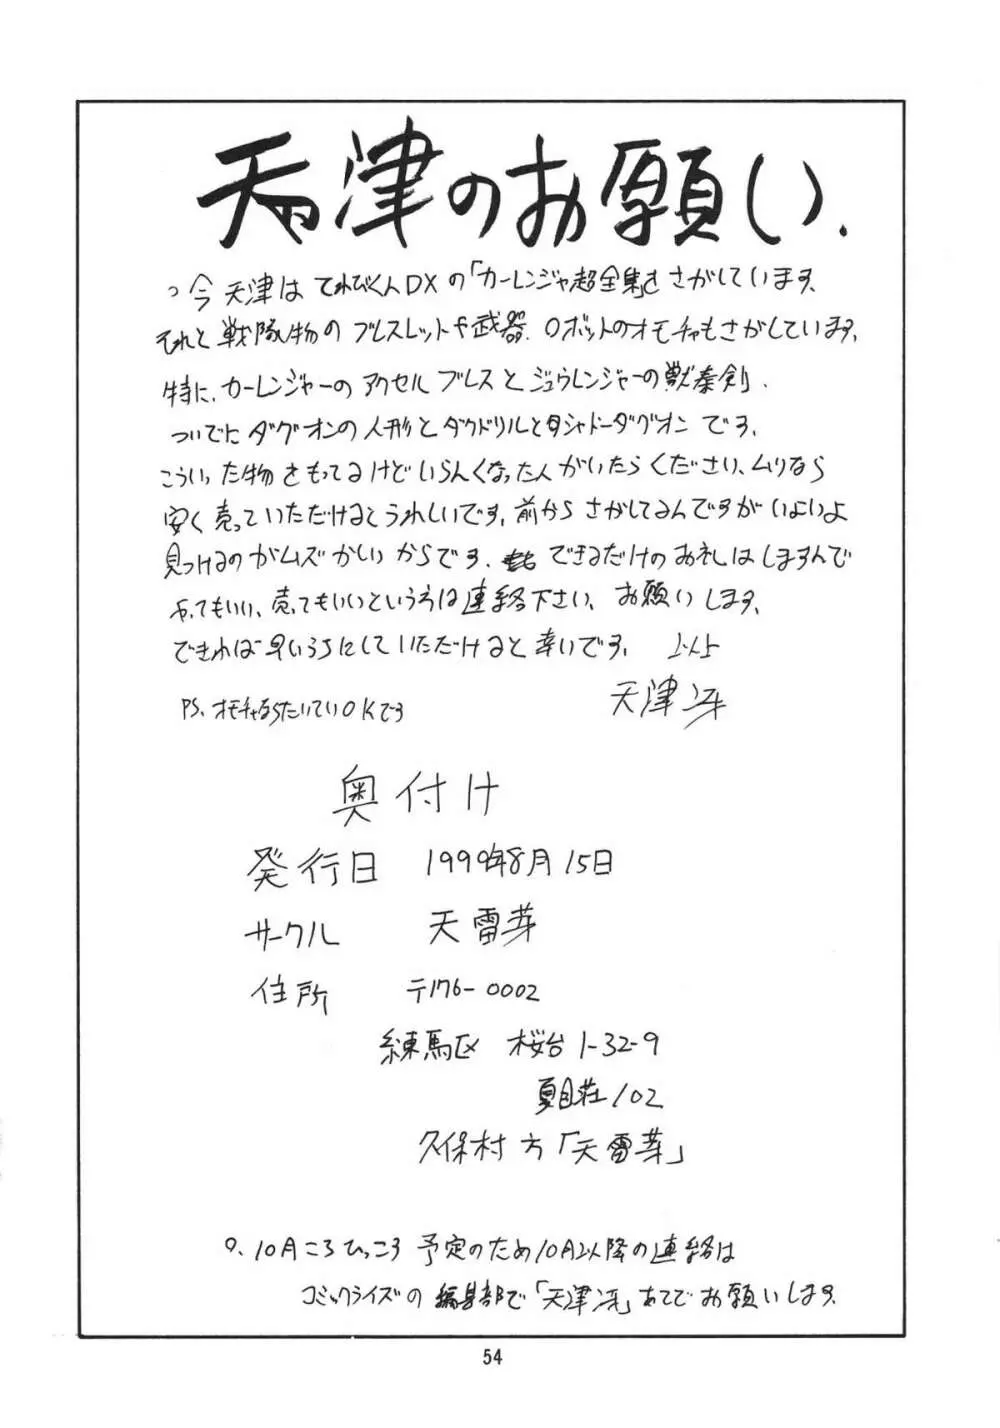 天津のお願い.
今天津はてれびくんDXの「カーレンジャー超全集」をさがしています.
それと戦隊物のブレスレットや武器.ロボットのオモチャもさがしています.
特に.カーレンジャーのアクセルブレスとジュウレンジャーの獣奏剣.
ついでにダグオンの人形とダグドリルとシャドーダグオンです.
こういった物をもってるけどいらんくなった人がいたらください、ムリなら
安く売っていただけるとうれしいです.前からさがしてるんですがいよいよ
見つけるのがムズかしいからです.できるだけのお礼はしますんで
やってもいい、売ってもいいという方は連絡下さい、お願いします.
できれば早いうちにしていただけると幸いです. 以上
天津冴
PS.オモチャならたいていOKです
奥付け
発行日 1999年8月15日
サークル 天雷芽
住所 〒176-0002
練馬区 桜台1-32-9
夏目荘102
久保村方「天雷芽」
0.10月ころひっこる予定のため10月以降の連絡は
コミックライズの編集部で「天津冴」あてでお願いします.
54